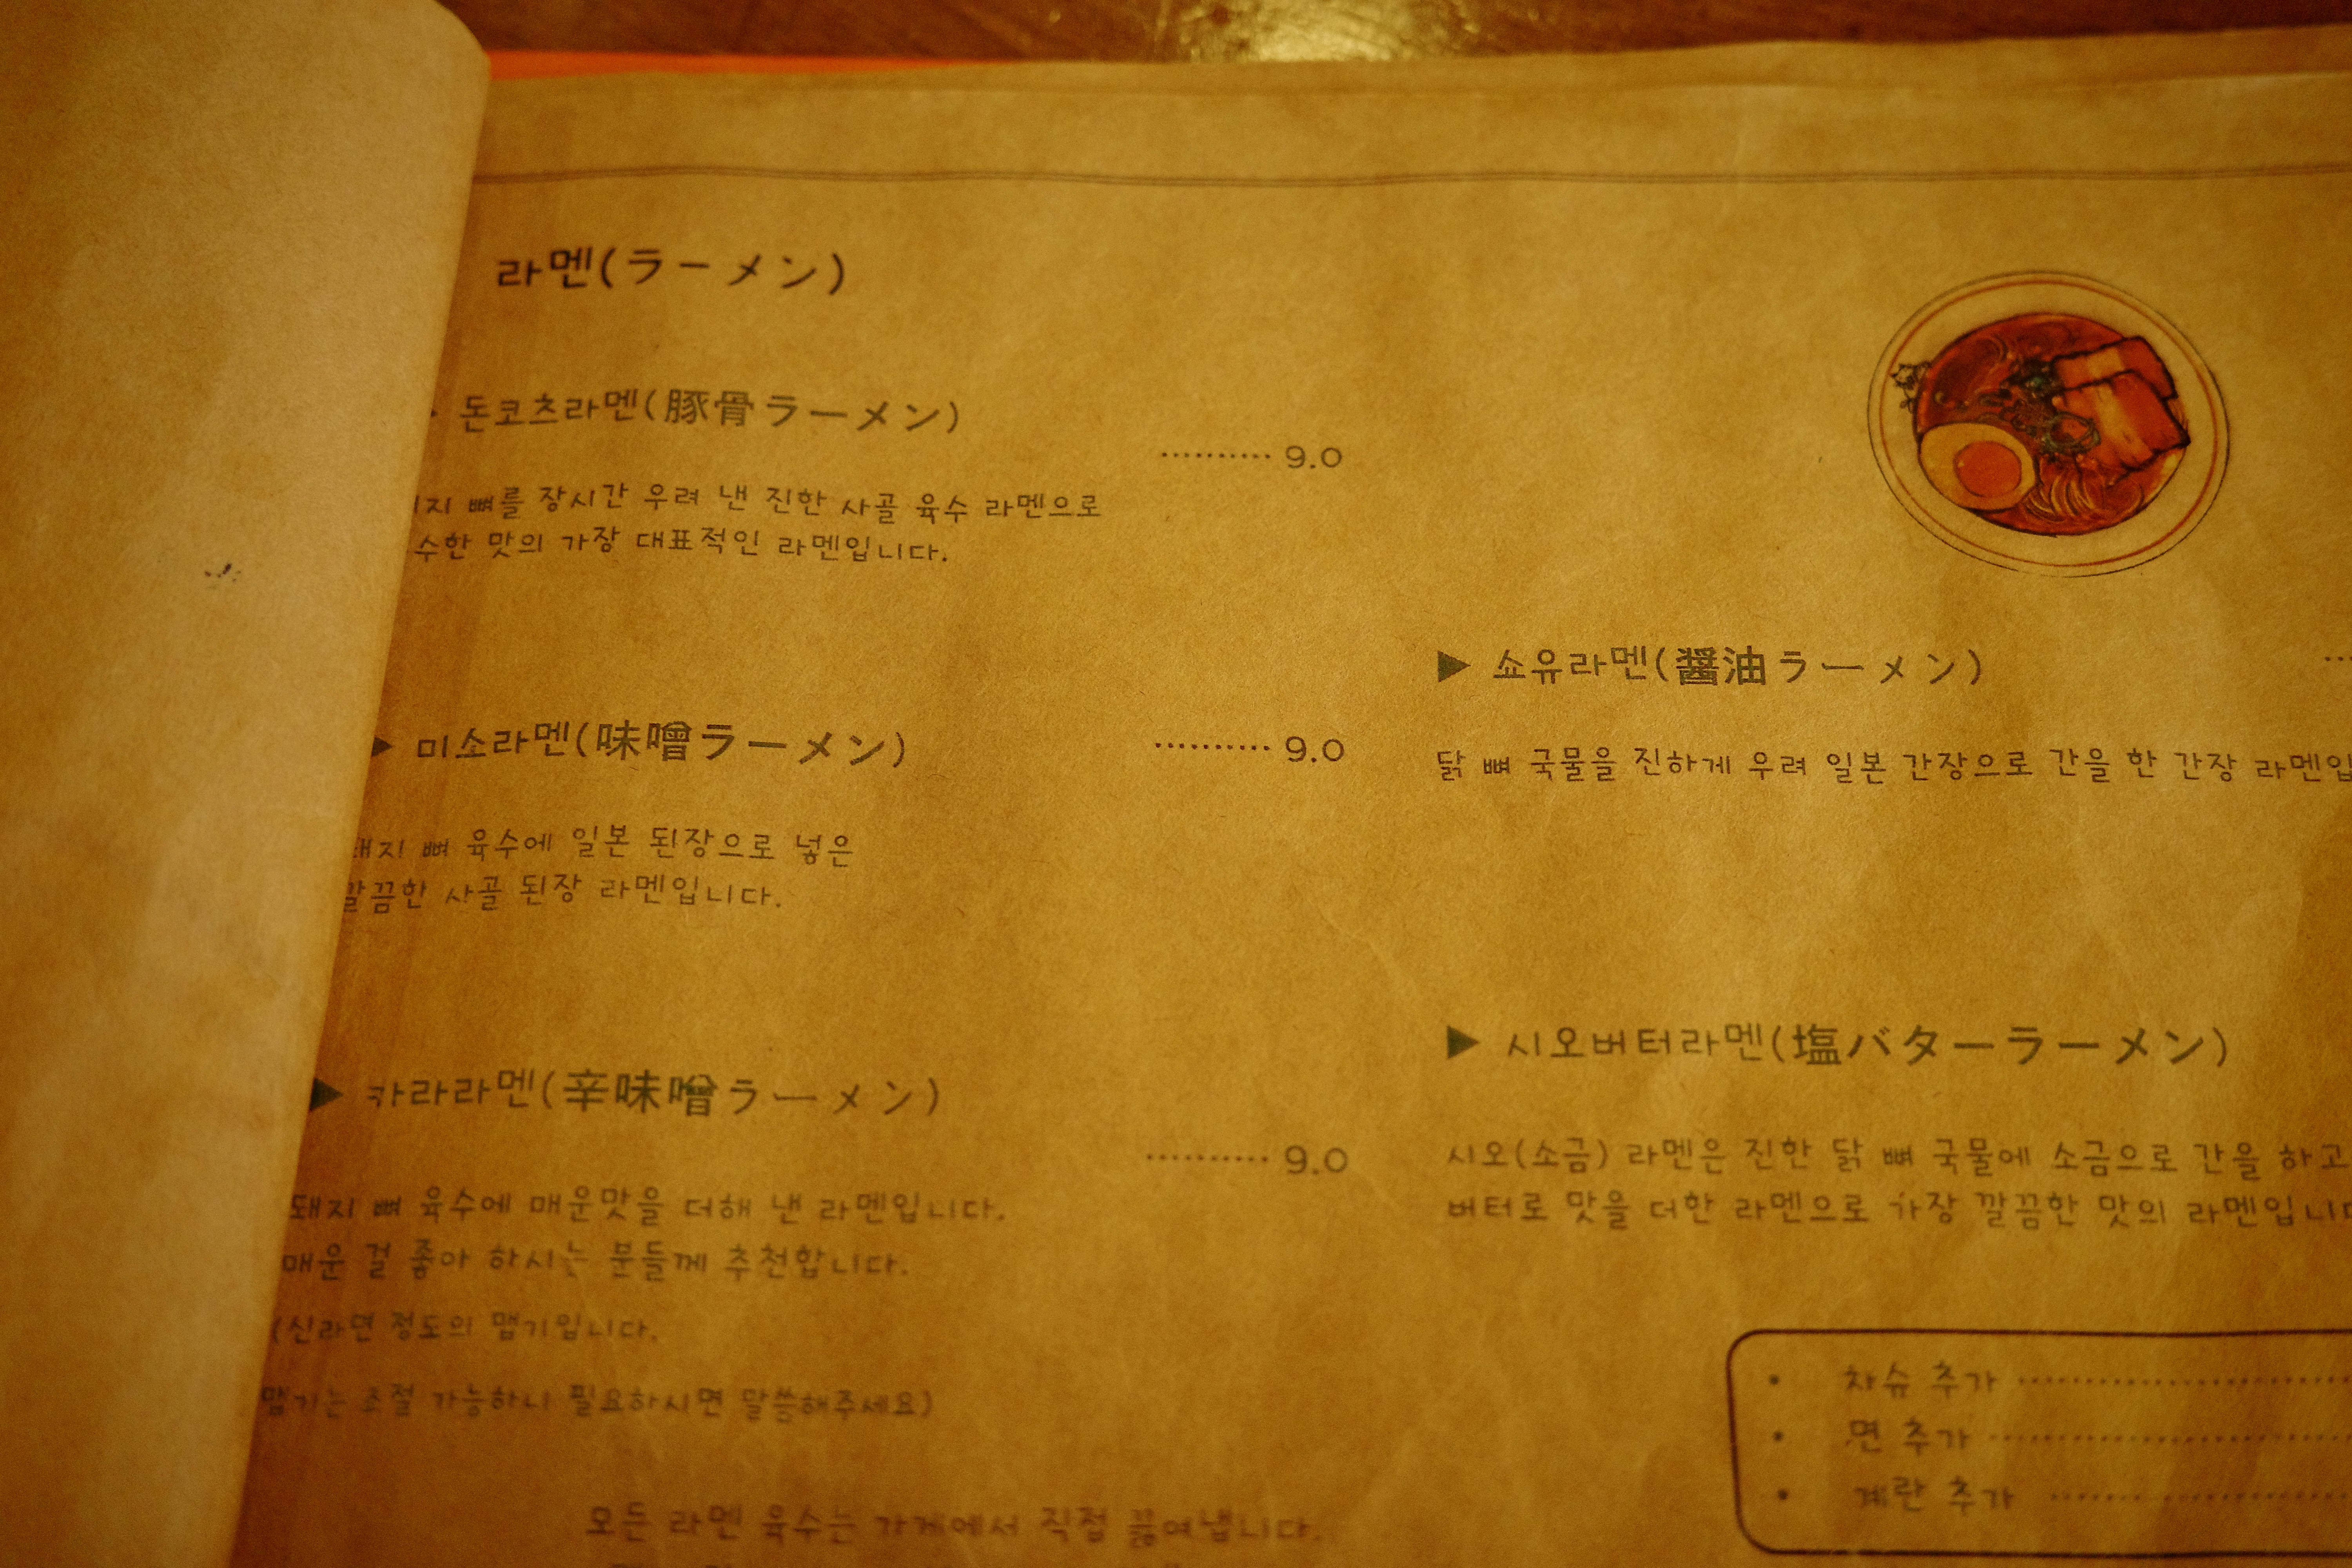 라멘(ラーメン)
돈코츠라멘(豚骨ラーメン)
.......... 9.0
지 뼈를 장시간 우려 낸 진한 사골 육수 라멘으로
수한 맛의 가장 대표적인 라멘입니다.
▶ 미소라멘(味噌ラーメン)
.......... 9.0
돼지 뼈 육수에 일본 된장으로 넣은
깔끔한 사골 된장 라멘입니다.
▶ 카라라멘(辛味噌ラーメン)
.......... 9.0
돼지 뼈 육수에 매운맛을 더해 낸 라멘입니다.
매운 걸 좋아 하시는 분들께 추천합니다.
(신라면 정도의 맵기입니다.
맵기는 조절 가능하니 필요하시면 말씀해주세요)
모든 라멘 육수는 가게에서 직접 끓여냅니다.
▶ 쇼유라멘(醤油ラーメン)
닭 뼈 국물을 진하게 우려 일본 간장으로 간을 한 간장 라멘입
▶ 시오버터라멘(塩バターラーメン)
시오(소금) 라멘은 진한 닭 뼈 국물에 소금으로 간을 하고
버터로 맛을 더한 라멘으로 가장 깔끔한 맛의 라멘입니다
• 차슈 추가
• 면 추가
• 계란 추가